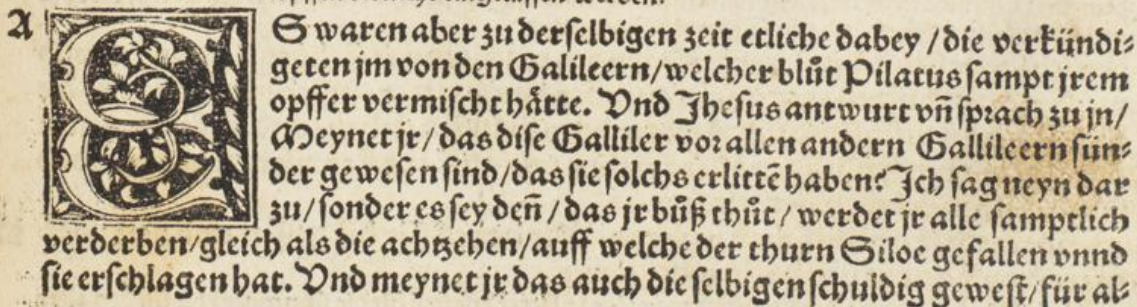 A
ES waren aber zu derselbigen zeit etliche dabey / die verkündi⸗
geten jm von den Galileern / welcher blůt Pilatus sampt jrem
opffer vermischt hätte. Vnd Jhesus antwurt vñ sprach zu jn /
Meynet jr / das dise Galliler vor allen andern Gallileern sün⸗
der gewesen sind / das sie solchs erlittẽ haben? Ich sag neyn dar
zu / sonder es sey deñ / das jr bůß thůt / werdet jr alle samptlich
verderben / gleich als die achtzehen / auff welche der thurn Siloe gefallen vnnd
sie erschlagen hat. Vnd meynet jr das auch die selbigen schuldig gewest / für al⸗